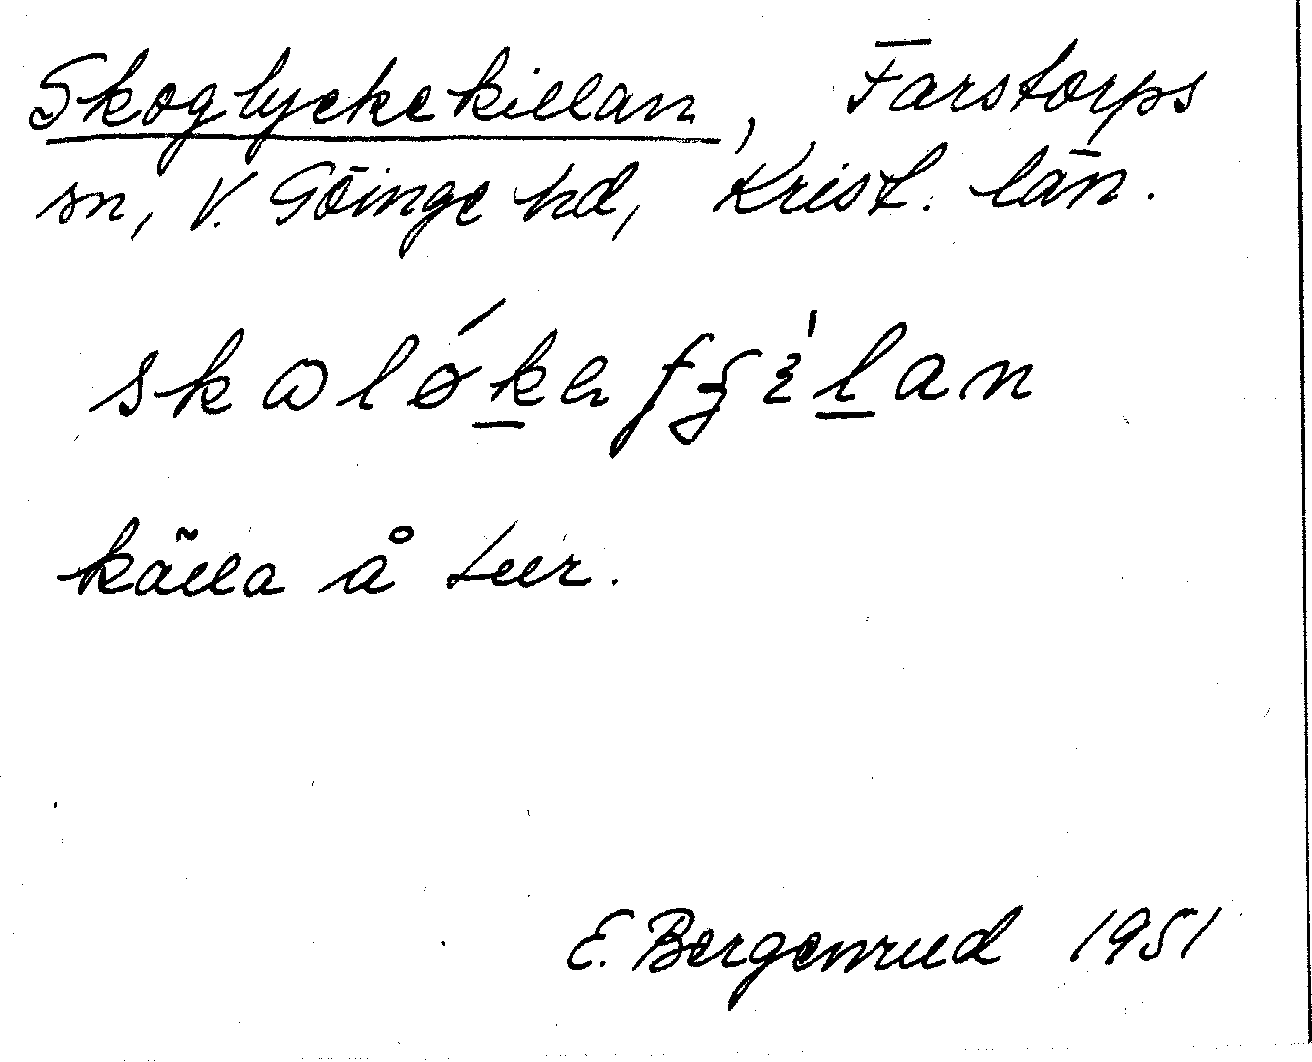 Skoglyckekillan, Farstorps
sn, V. Göinge hd, Krist. län.
skaløka
källa å tur.
E. Bergenrud 1951